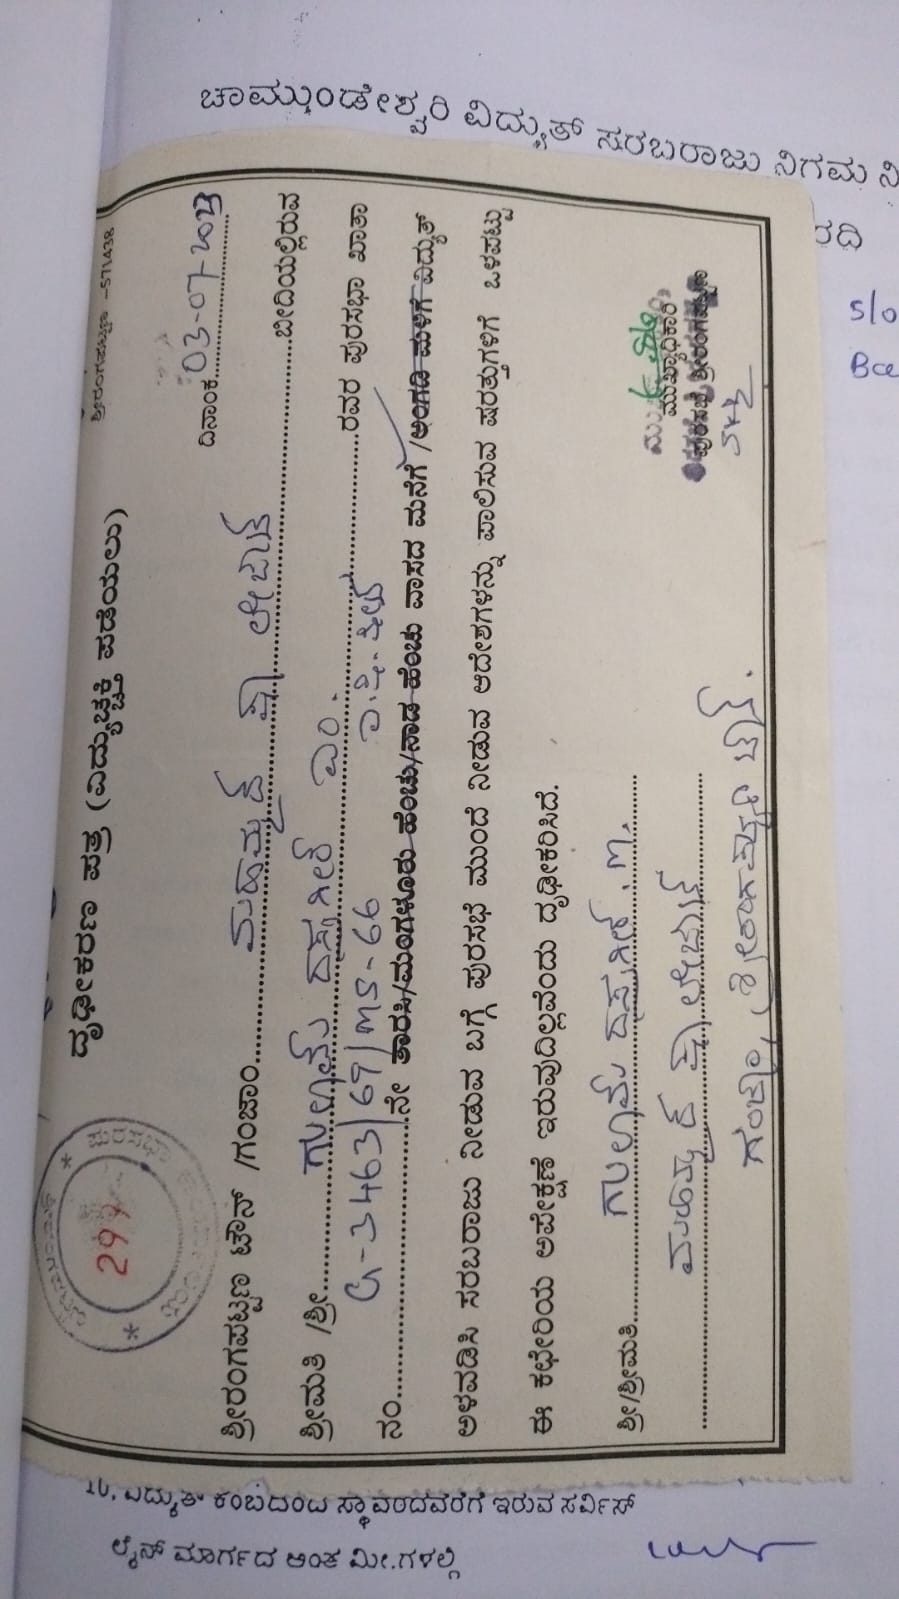 ಚಾಮುಂಡೇಶ್ವರಿ ವಿದ್ಯುತ್ ಸರಬರಾಜು ನಿಗಮ ನಿ
ರದಿ
S/o
ಶ್ರೀರಂಗಪಟ್ಟಣ -571438
ದೃಢೀಕರಣ ಪತ್ರ (ವಿದ್ಯುಚ್ಛಕ್ತಿ ಪಡೆಯಲು)
299
ದಿನಾಂಕ 03-07-2023
ಶ್ರೀರಂಗಪಟ್ಟಣ ಟೌನ್ /ಗಂಜಾಂ ಮಹಮ್ಮದ್ ಬೀದಿಯಲ್ಲಿರುವ
ಶ್ರೀಮತಿ /ಶ್ರೀ ಗುಲಾಮ್ ದಸ್ತಗೀರ್ ಎಂ. ರವರ ಪುರಸಭಾ ಖಾತಾ
ನಂ 3463/69/ms-66 ನೇ ತಾರಸಿ/ಮಂಗಳೂರು ಹೆಂಚು/ನಾಡ ಹೆಂಚು ವಾಸದ ಮನೆಗೆ /ಅಂಗಡಿ ಮಳಿಗೆ ವಿದ್ಯುತ್
ಅಳವಡಿಸಿ ಸರಬರಾಜು ನೀಡುವ ಬಗ್ಗೆ ಪುರಸಭೆ ಮುಂದೆ ನೀಡುವ ಆದೇಶಗಳನ್ನು ಪಾಲಿಸುವ ಷರತ್ತುಗಳಿಗೆ ಒಳಪಟ್ಟು
ಈ ಕಛೇರಿಯ ಅಪೇಕ್ಷಣೆ ಇರುವುದಿಲ್ಲವೆಂದು ದೃಢೀಕರಿಸಿದೆ.
ಶ್ರೀ/ಶ್ರೀಮತಿ ಗುಲಾಮ್ ದಸ್ತಗೀರ್ .m.
ಮಹಮ್ಮದ್
ಗಂಜಾಂ, ಶ್ರೀರಂಗಪಟ್ಟಣ
ಮುಖ್ಯಾಧಿಕಾರಿ
ಪುರಸಭೆ ಶ್ರೀರಂಗಪಟ್ಟಣ
10. ವಿದ್ಯುತ್ ಕಂಬದಿಂದ ಸ್ಥಾವರದವರೆಗೆ ಇರುವ ಸರ್ವಿಸ್
ಲೈನ್ ಮಾರ್ಗದ ಅಂತ ಮೀ.ಗಳಲ್ಲಿ